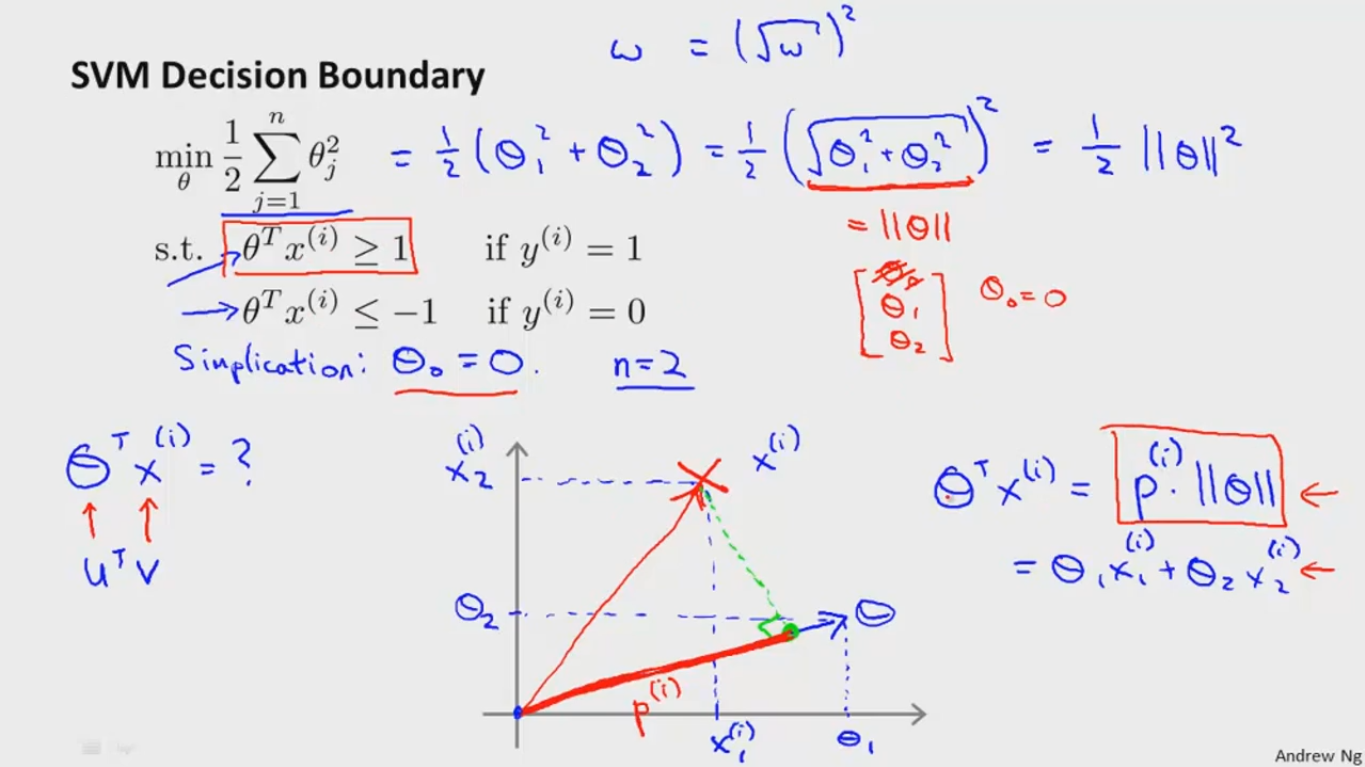 w = (√w)²
SVM Decision Boundary
min_θ 1/2 ∑_{j=1}^{n} θ_j² = 1/2 (θ₁² + θ₂²) = 1/2 (√(θ₁² + θ₂²))² = 1/2 ||θ||²
= ||θ||
s.t. θᵀx⁽ⁱ⁾ ≥ 1 if y⁽ⁱ⁾ = 1
[θ₀ θ₁ θ₂] θ₀ = 0
→ θᵀx⁽ⁱ⁾ ≤ −1 if y⁽ⁱ⁾ = 0
Simplication: θ₀ = 0. n=2
θᵀx⁽ⁱ⁾ = ?
↑ ↑
uᵀv
x₂⁽ⁱ⁾
x⁽ⁱ⁾
θ₂
θ
p⁽ⁱ⁾
x₁⁽ⁱ⁾
θ₁
θᵀx⁽ⁱ⁾ = p⁽ⁱ⁾ · ||θ|| ←
= θ₁x₁⁽ⁱ⁾ + θ₂x₂⁽ⁱ⁾ ←
Andrew Ng